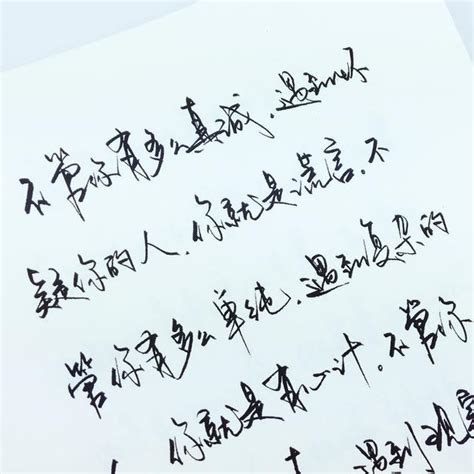 不管你有多么真诚，遇到怀
疑你的人，你就是谎言，不
管你有多么单纯，遇到复杂的
人，你就是有心计。不管你
遇到观